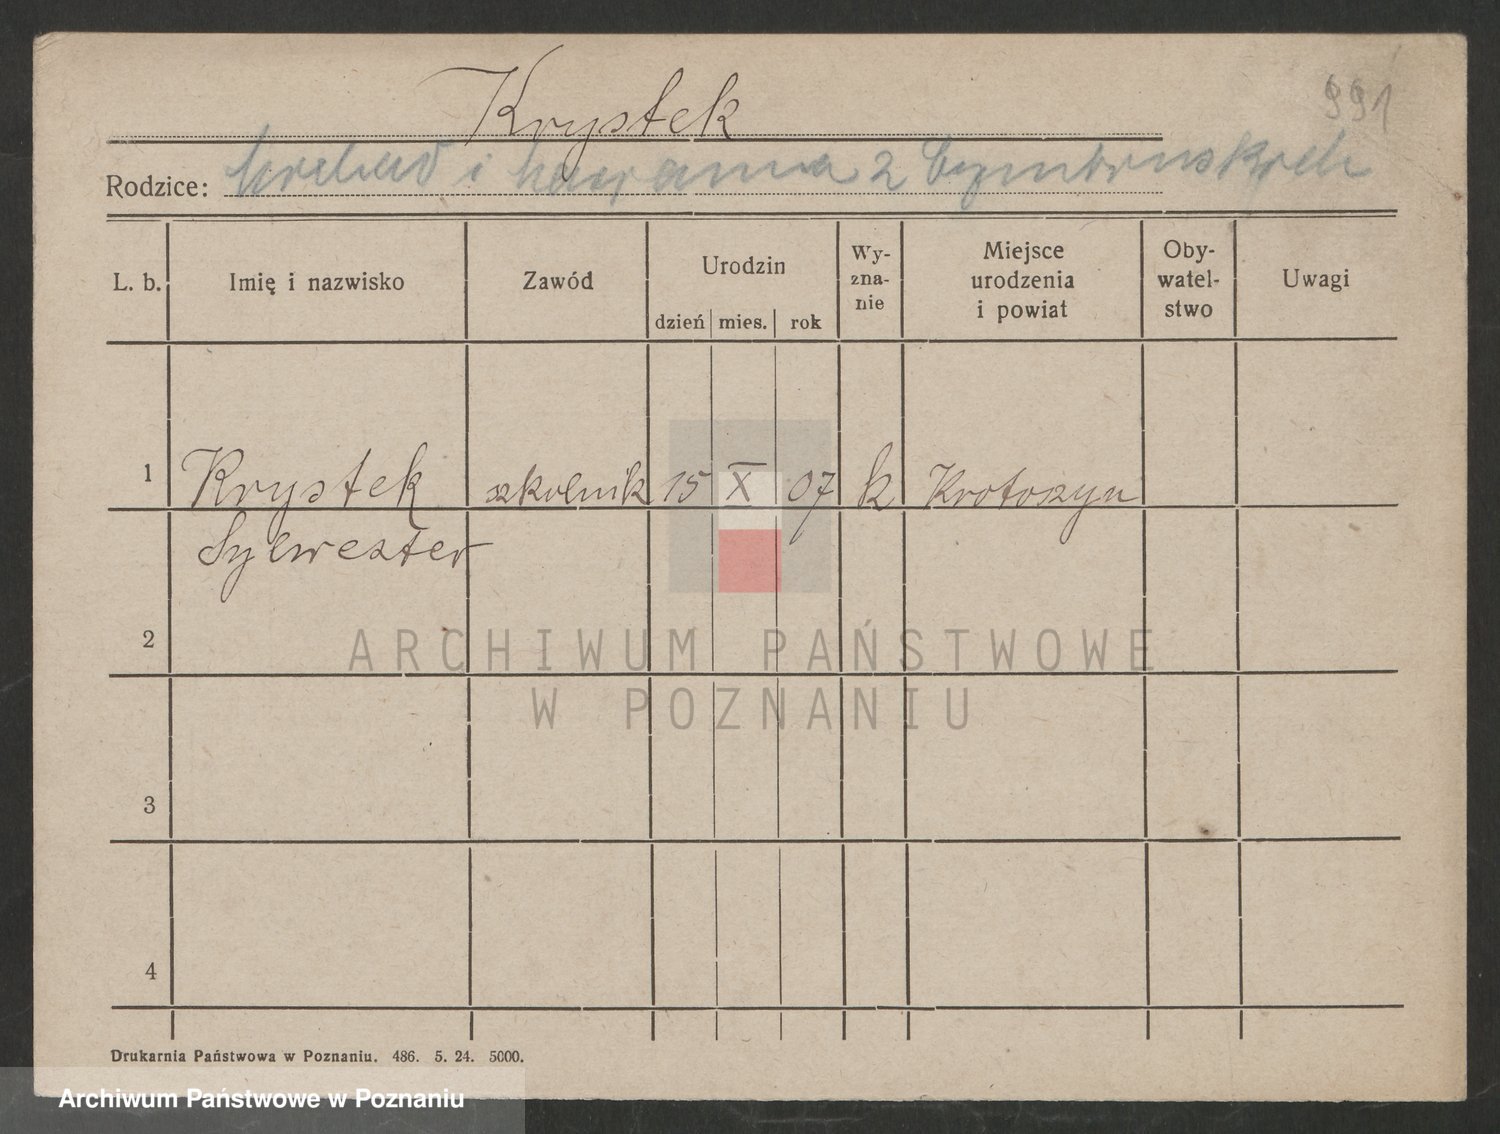 Krystek
991
Rodzice: i z
L. b. Imię i nazwisko Zawód Urodzin dzień mies. rok Wy-zna-nie Miejsce urodzenia i powiat Oby-watel-stwo Uwagi
1 Krystek szkolnik 15 X 07 k Krotoszyn
Sylwester
2
3
4
ARCHIWUM PAŃSTWOWE
W POZNANIU
Drukarnia Państwowa w Poznaniu. 486. 5. 24. 5000.
Archiwum Państwowe w Poznaniu